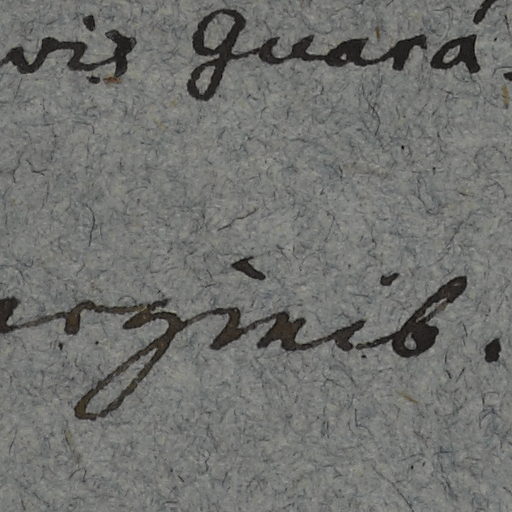 vis Guará.
arginib.